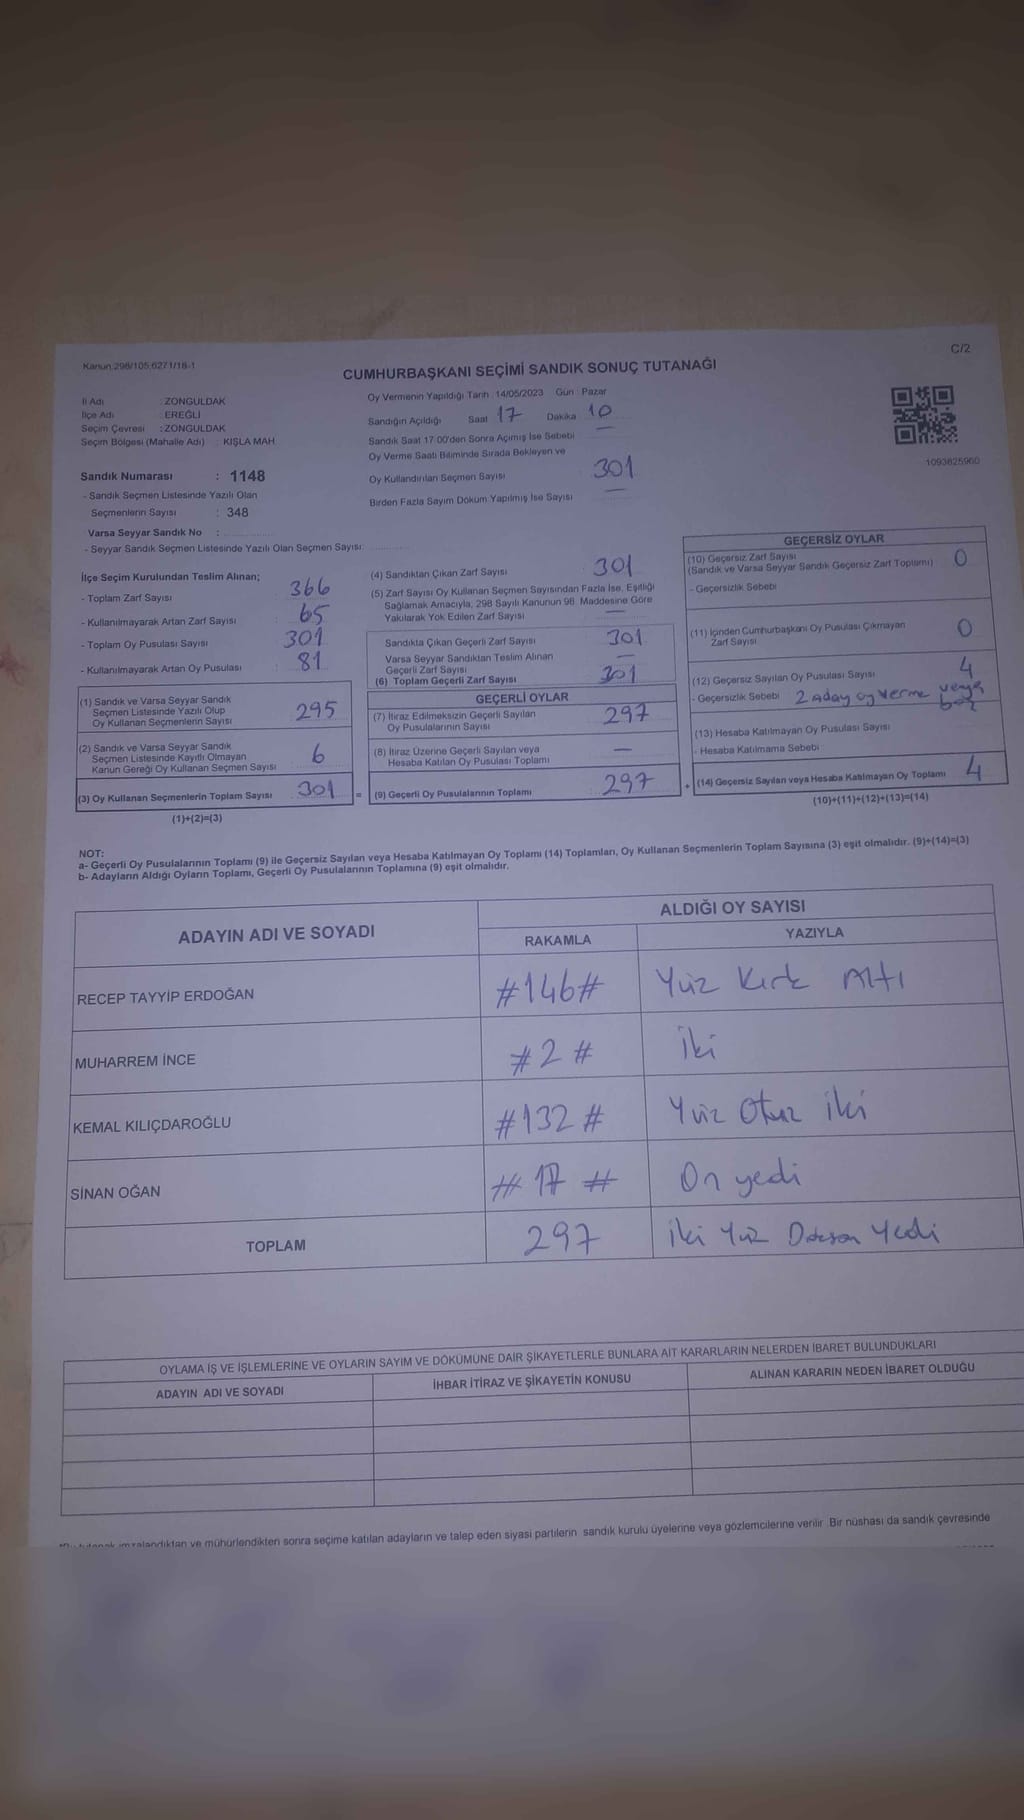 Kanun 298/105,6271/18-1
C/2
CUMHURBAŞKANI SEÇİMİ SANDIK SONUÇ TUTANAĞI
İl Adı : ZONGULDAK
İlçe Adı : EREĞLİ
Seçim Çevresi : ZONGULDAK
Seçim Bölgesi (Mahalle Adı) : KIŞLA MAH
Sandık Numarası : 1148
- Sandık Seçmen Listesinde Yazılı Olan
Seçmenlerin Sayısı : 348
Varsa Seyyar Sandık No :
- Seyyar Sandık Seçmen Listesinde Yazılı Olan Seçmen Sayısı:
Oy Vermenin Yapıldığı Tarih : 14/05/2023 Gün : Pazar
Sandığın Açıldığı Saat 17 Dakika 10
Sandık Saat 17:00'den Sonra Açımış İse Sebebi —
Oy Verme Saati Bitiminde Sırada Bekleyen ve
Oy Kullandırılan Seçmen Sayısı 301
Birden Fazla Sayım Döküm Yapılmış İse Sayısı —
1093625960
İlçe Seçim Kurulundan Teslim Alınan;
- Toplam Zarf Sayısı : 366
- Kullanılmayarak Artan Zarf Sayısı : 65
- Toplam Oy Pusulası Sayısı : 301
- Kullanılmayarak Artan Oy Pusulası : 81
(1) Sandık ve Varsa Seyyar Sandık
Seçmen Listesinde Yazılı Olup
Oy Kullanan Seçmenlerin Sayısı 295
(2) Sandık ve Varsa Seyyar Sandık
Seçmen Listesinde Kayıtlı Olmayan
Kanun Gereği Oy Kullanan Seçmen Sayısı 6
(3) Oy Kullanan Seçmenlerin Toplam Sayısı 301 =
(1)+(2)=(3)
(4) Sandıktan Çıkan Zarf Sayısı 301
(5) Zarf Sayısı Oy Kullanan Seçmen Sayısından Fazla İse, Eşitliği
Sağlamak Amacıyla, 298 Sayılı Kanunun 98. Maddesine Göre
Yakılarak Yok Edilen Zarf Sayısı —
Sandıkta Çıkan Geçerli Zarf Sayısı 301
Varsa Seyyar Sandıktan Teslim Alınan
Geçerli Zarf Sayısı —
(6) Toplam Geçerli Zarf Sayısı 301
GEÇERLİ OYLAR
(7) İtiraz Edilmeksizin Geçerli Sayılan
Oy Pusulalarının Sayısı 297
(8) İtiraz Üzerine Geçerli Sayılan veya
Hesaba Katılan Oy Pusulası Toplamı —
(9) Geçerli Oy Pusulalarının Toplamı 297 +
GEÇERSİZ OYLAR
(10) Geçersiz Zarf Sayısı
(Sandık ve Varsa Seyyar Sandık Geçersiz Zarf Toplamı) 0
- Geçersizlik Sebebi
(11) İçinden Cumhurbaşkanı Oy Pusulası Çıkmayan
Zarf Sayısı 0
(12) Geçersiz Sayılan Oy Pusulası Sayısı 4
- Geçersizlik Sebebi 2 Aday oy verme veya
boş
(13) Hesaba Katılmayan Oy Pusulası Sayısı
- Hesaba Katılmama Sebebi
(14) Geçersiz Sayılan veya Hesaba Katılmayan Oy Toplamı 4
(10)+(11)+(12)+(13)=(14)
NOT:
a- Geçerli Oy Pusulalarının Toplamı (9) ile Geçersiz Sayılan veya Hesaba Katılmayan Oy Toplamı (14) Toplamları, Oy Kullanan Seçmenlerin Toplam Sayısına (3) eşit olmalıdır. (9)+(14)=(3)
b- Adayların Aldığı Oyların Toplamı, Geçerli Oy Pusulalarının Toplamına (9) eşit olmalıdır.
ADAYIN ADI VE SOYADI
ALDIĞI OY SAYISI
RAKAMLA YAZIYLA
RECEP TAYYİP ERDOĞAN #146# Yüz Kırk Altı
MUHARREM İNCE #2# İki
KEMAL KILIÇDAROĞLU #132# Yüz Otuz iki
SİNAN OĞAN #17# On yedi
TOPLAM 297 İki Yüz Doksan Yedi
OYLAMA İŞ VE İŞLEMLERİNE VE OYLARIN SAYIM VE DÖKÜMÜNE DAİR ŞİKAYETLERLE BUNLARA AİT KARARLARIN NELERDEN İBARET BULUNDUKLARI
ADAYIN ADI VE SOYADI İHBAR İTİRAZ VE ŞİKAYETİN KONUSU ALINAN KARARIN NEDEN İBARET OLDUĞU
imzalandıktan ve mühürlendikten sonra seçime katılan adayların ve talep eden siyasi partilerin sandık kurulu üyelerine veya gözlemcilerine verilir. Bir nüshası da sandık çevresinde